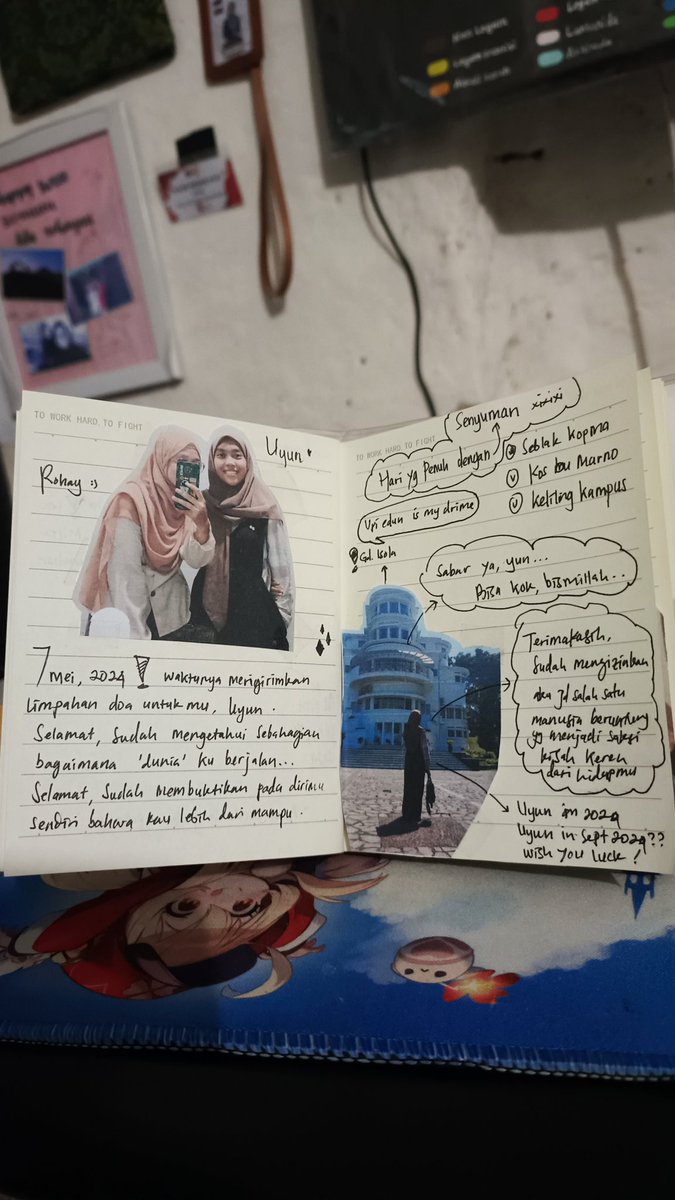 TO WORK HARD, TO FIGHT
Rohay :)
Uyun
7 Mei, 2024 waktunya mengirimkan
limpahan doa untuk mu, Uyun.
Selamat, sudah mengetahui sebahagian
bagaimana 'dunia' ku berjalan...
Selamat, sudah membuktikan pada dirimu
sendiri bahwa kau lebih dari mampu.
TO WORK HARD, TO FIGHT
Hari yg penuh dengan
Senyuman xixixi
Seblak Kopma
Kos bu Marno
Keliling Kampus
Upi edun is my drime
Gd. Isola
Sabar ya, yun...
Bisa kok, bismillah..
Terimakasih,
sudah mengizinkan
aku jd salah satu
manusia beruntung
yg menjadi saksi
kisah keren
dari hidupmu
Uyun in 2024
Uyun in Sept 2024??
Wish you luck!